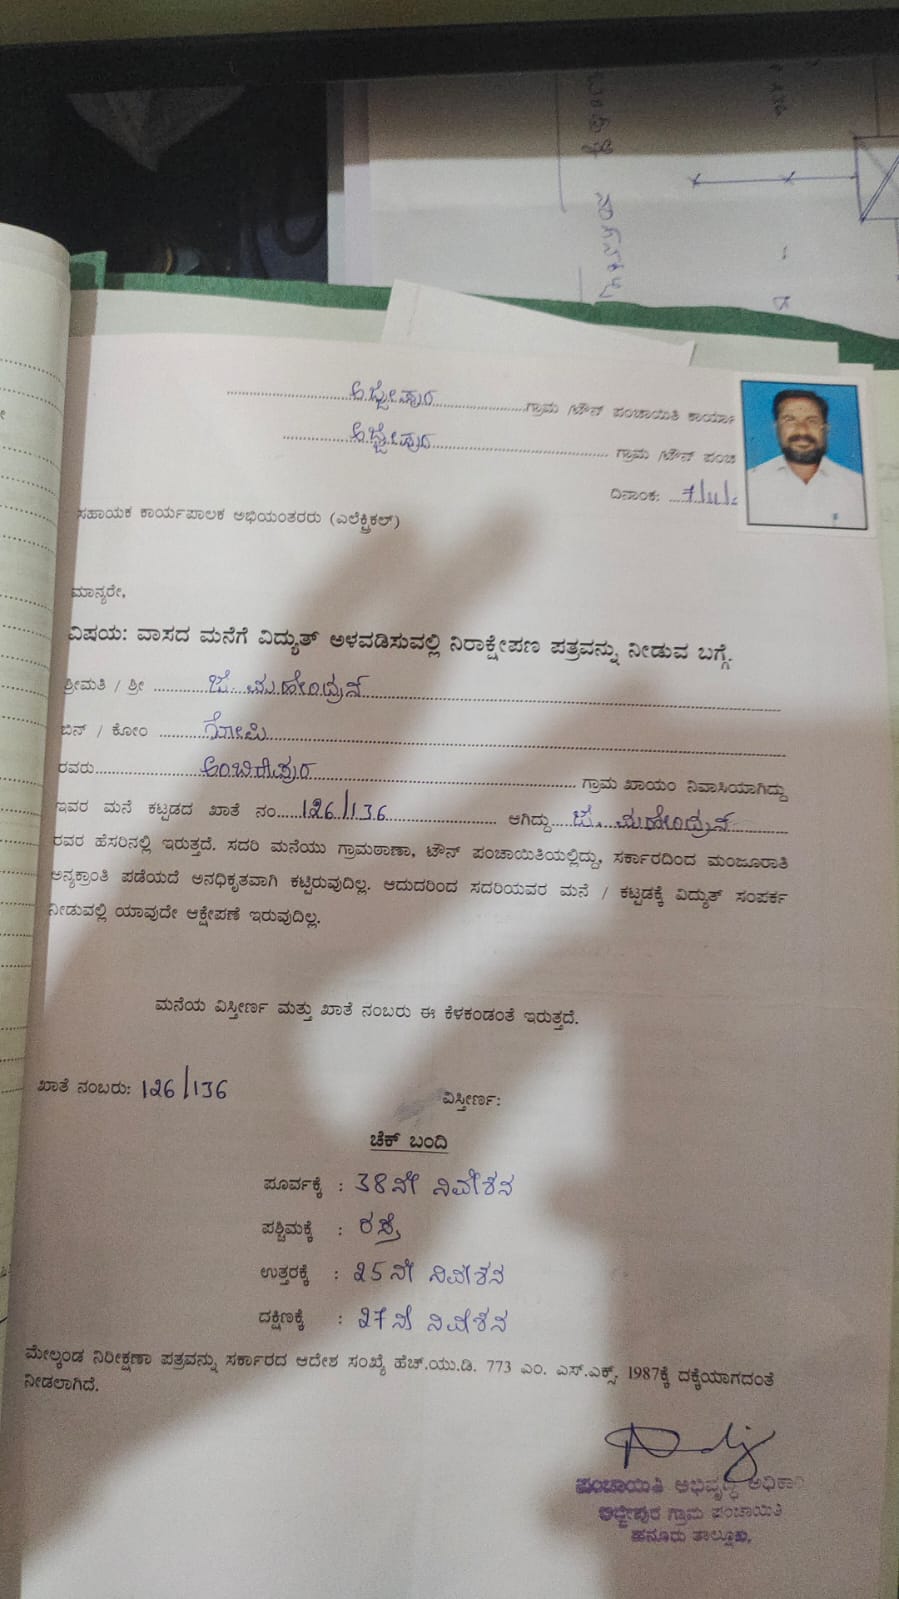 ಅಜ್ಜೀಪುರ ಗ್ರಾಮ /ಟೌನ್ ಪಂಚಾಯಿತಿ
ಅಜ್ಜೀಪುರ ಗ್ರಾಮ /ಟೌನ್
ದಿನಾಂಕ:
ಸಹಾಯಕ ಕಾರ್ಯಪಾಲಕ ಅಭಿಯಂತರರು (ಎಲೆಕ್ಟ್ರಿಕಲ್)
ಮಾನ್ಯರೇ,
ವಿಷಯ: ವಾಸದ ಮನೆಗೆ ವಿದ್ಯುತ್ ಅಳವಡಿಸುವಲ್ಲಿ ನಿರಾಕ್ಷೇಪಣ ಪತ್ರವನ್ನು ನೀಡುವ ಬಗ್ಗೆ.
ಶ್ರೀಮತಿ / ಶ್ರೀ ಜಿ. ಮಹೇಂದ್ರನ್
ಬಿನ್ / ಕೋಂ ಗೋಪಿ
ರವರು ಅಂಬಿಕಾಪುರ ಗ್ರಾಮ ಖಾಯಂ ನಿವಾಸಿಯಾಗಿದ್ದು
ಇವರ ಮನೆ ಕಟ್ಟಡದ ಖಾತೆ ನಂ. 126/136 ಆಗಿದ್ದು ಜಿ. ಮಹೇಂದ್ರನ್
ರವರ ಹೆಸರಿನಲ್ಲಿ ಇರುತ್ತದೆ. ಸದರಿ ಮನೆಯು ಗ್ರಾಮಠಾಣಾ, ಟೌನ್ ಪಂಚಾಯಿತಿಯಲ್ಲಿದ್ದು, ಸರ್ಕಾರದಿಂದ ಮಂಜೂರಾತಿ
ಅನ್ಯಕ್ರಾಂತಿ ಪಡೆಯದೆ ಅನಧಿಕೃತವಾಗಿ ಕಟ್ಟಿರುವುದಿಲ್ಲ. ಆದುದರಿಂದ ಸದರಿಯವರ ಮನೆ / ಕಟ್ಟಡಕ್ಕೆ ವಿದ್ಯುತ್ ಸಂಪರ್ಕ
ನೀಡುವಲ್ಲಿ ಯಾವುದೇ ಆಕ್ಷೇಪಣೆ ಇರುವುದಿಲ್ಲ.
ಮನೆಯ ವಿಸ್ತೀರ್ಣ ಮತ್ತು ಖಾತೆ ನಂಬರು ಈ ಕೆಳಕಂಡಂತೆ ಇರುತ್ತದೆ.
ಖಾತೆ ನಂಬರು: 126/136 ವಿಸ್ತೀರ್ಣ:
ಚೆಕ್ ಬಂದಿ
ಪೂರ್ವಕ್ಕೆ : 38ನೇ ನಿವೇಶನ
ಪಶ್ಚಿಮಕ್ಕೆ : ರಸ್ತೆ
ಉತ್ತರಕ್ಕೆ : 25ನೇ ನಿವೇಶನ
ದಕ್ಷಿಣಕ್ಕೆ : 27ನೇ ನಿವೇಶನ
ಮೇಲ್ಕಂಡ ನಿರೀಕ್ಷಣಾ ಪತ್ರವನ್ನು ಸರ್ಕಾರದ ಆದೇಶ ಸಂಖ್ಯೆ ಹೆಚ್.ಯು.ಡಿ. 773 ಎಂ. ಎಸ್.ಎಕ್ಸ್. 1987ಕ್ಕೆ ದಕ್ಕೆಯಾಗದಂತೆ
ನೀಡಲಾಗಿದೆ.
ಪಂಚಾಯಿತಿ ಅಭಿವೃದ್ಧಿ
ಅಜ್ಜೀಪುರ ಗ್ರಾಮ ಪಂಚಾಯಿತಿ
ಹನೂರು ತಾಲ್ಲೂಕು.